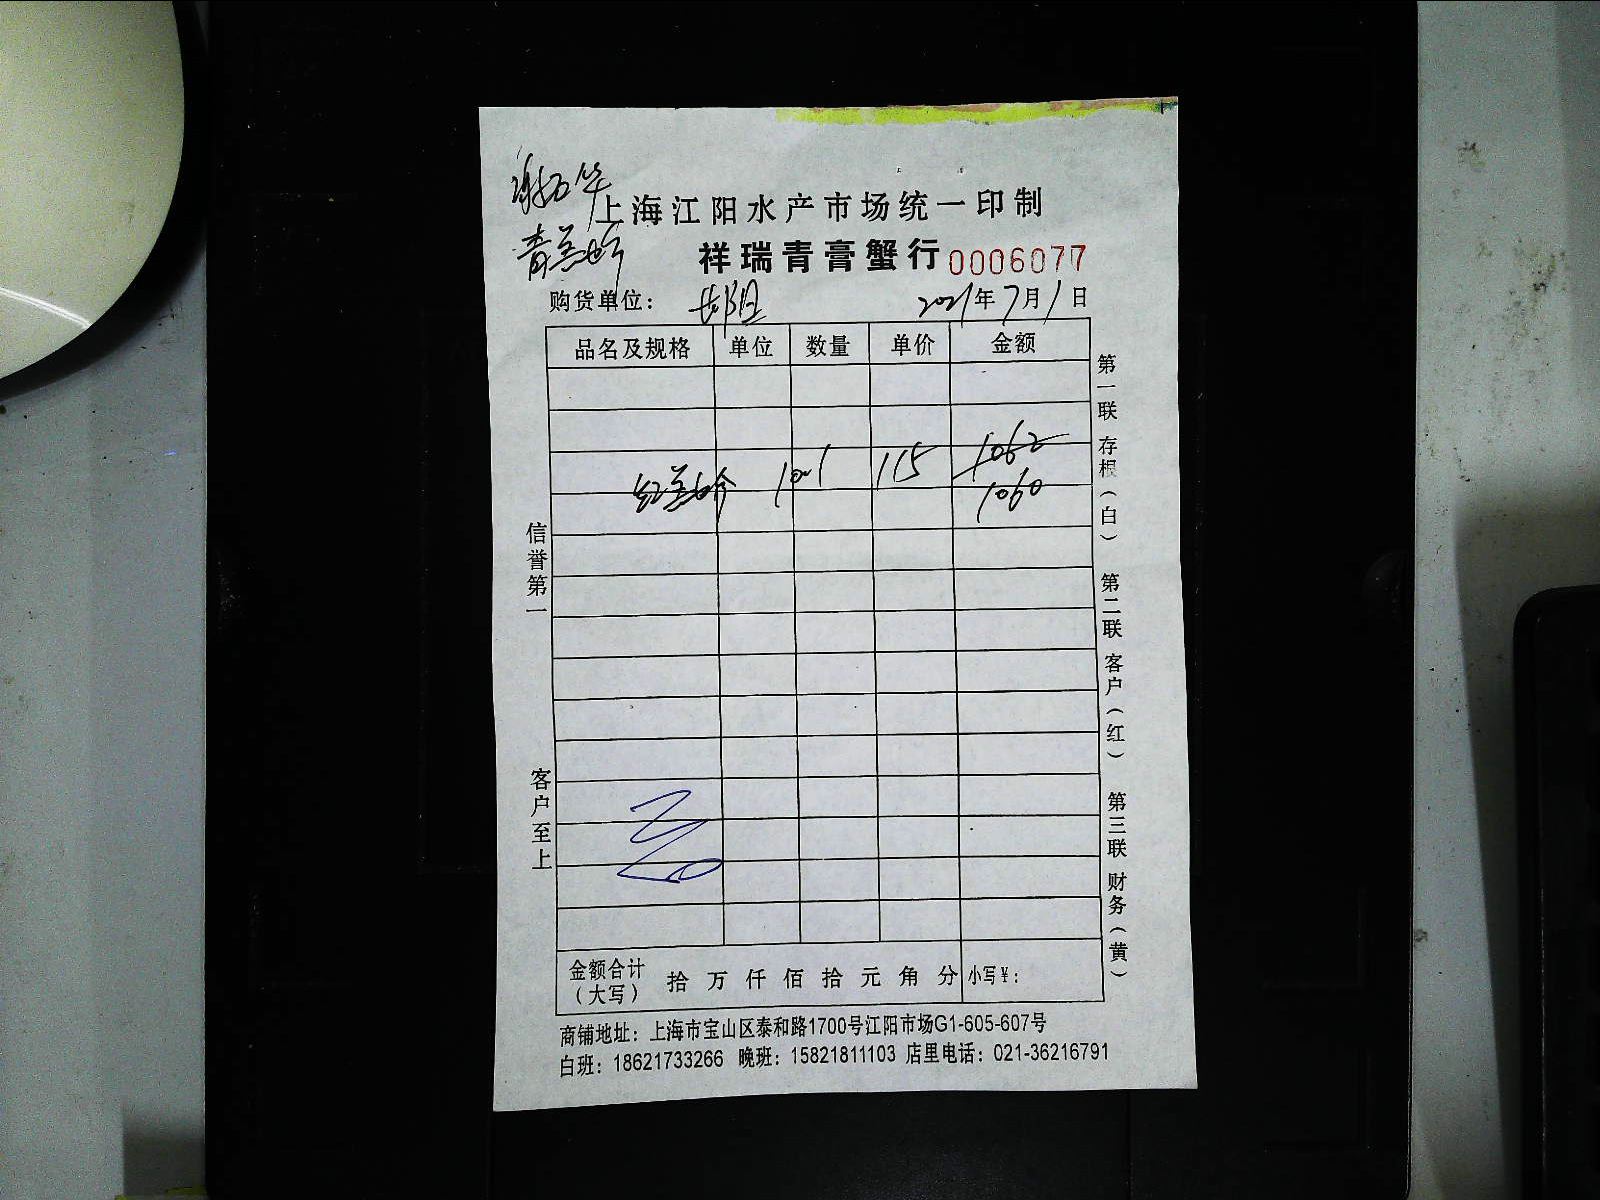 上海江阳水产市场统一印制
祥瑞青膏蟹行 0006077
购货单位: 2021年7月1日
品名及规格 单位 数量 单价 金额
115 1062
1060
信誉第一
客户至上
第一联 存根(白) 第二联 客户(红) 第三联 财务(黄)
金额合计(大写) 拾 万 仟 佰 拾 元 角 分 小写¥:
商铺地址: 上海市宝山区泰和路1700号江阳市场G1-605-607号
白班: 18621733266 晚班: 15821811103 店里电话: 021-36216791